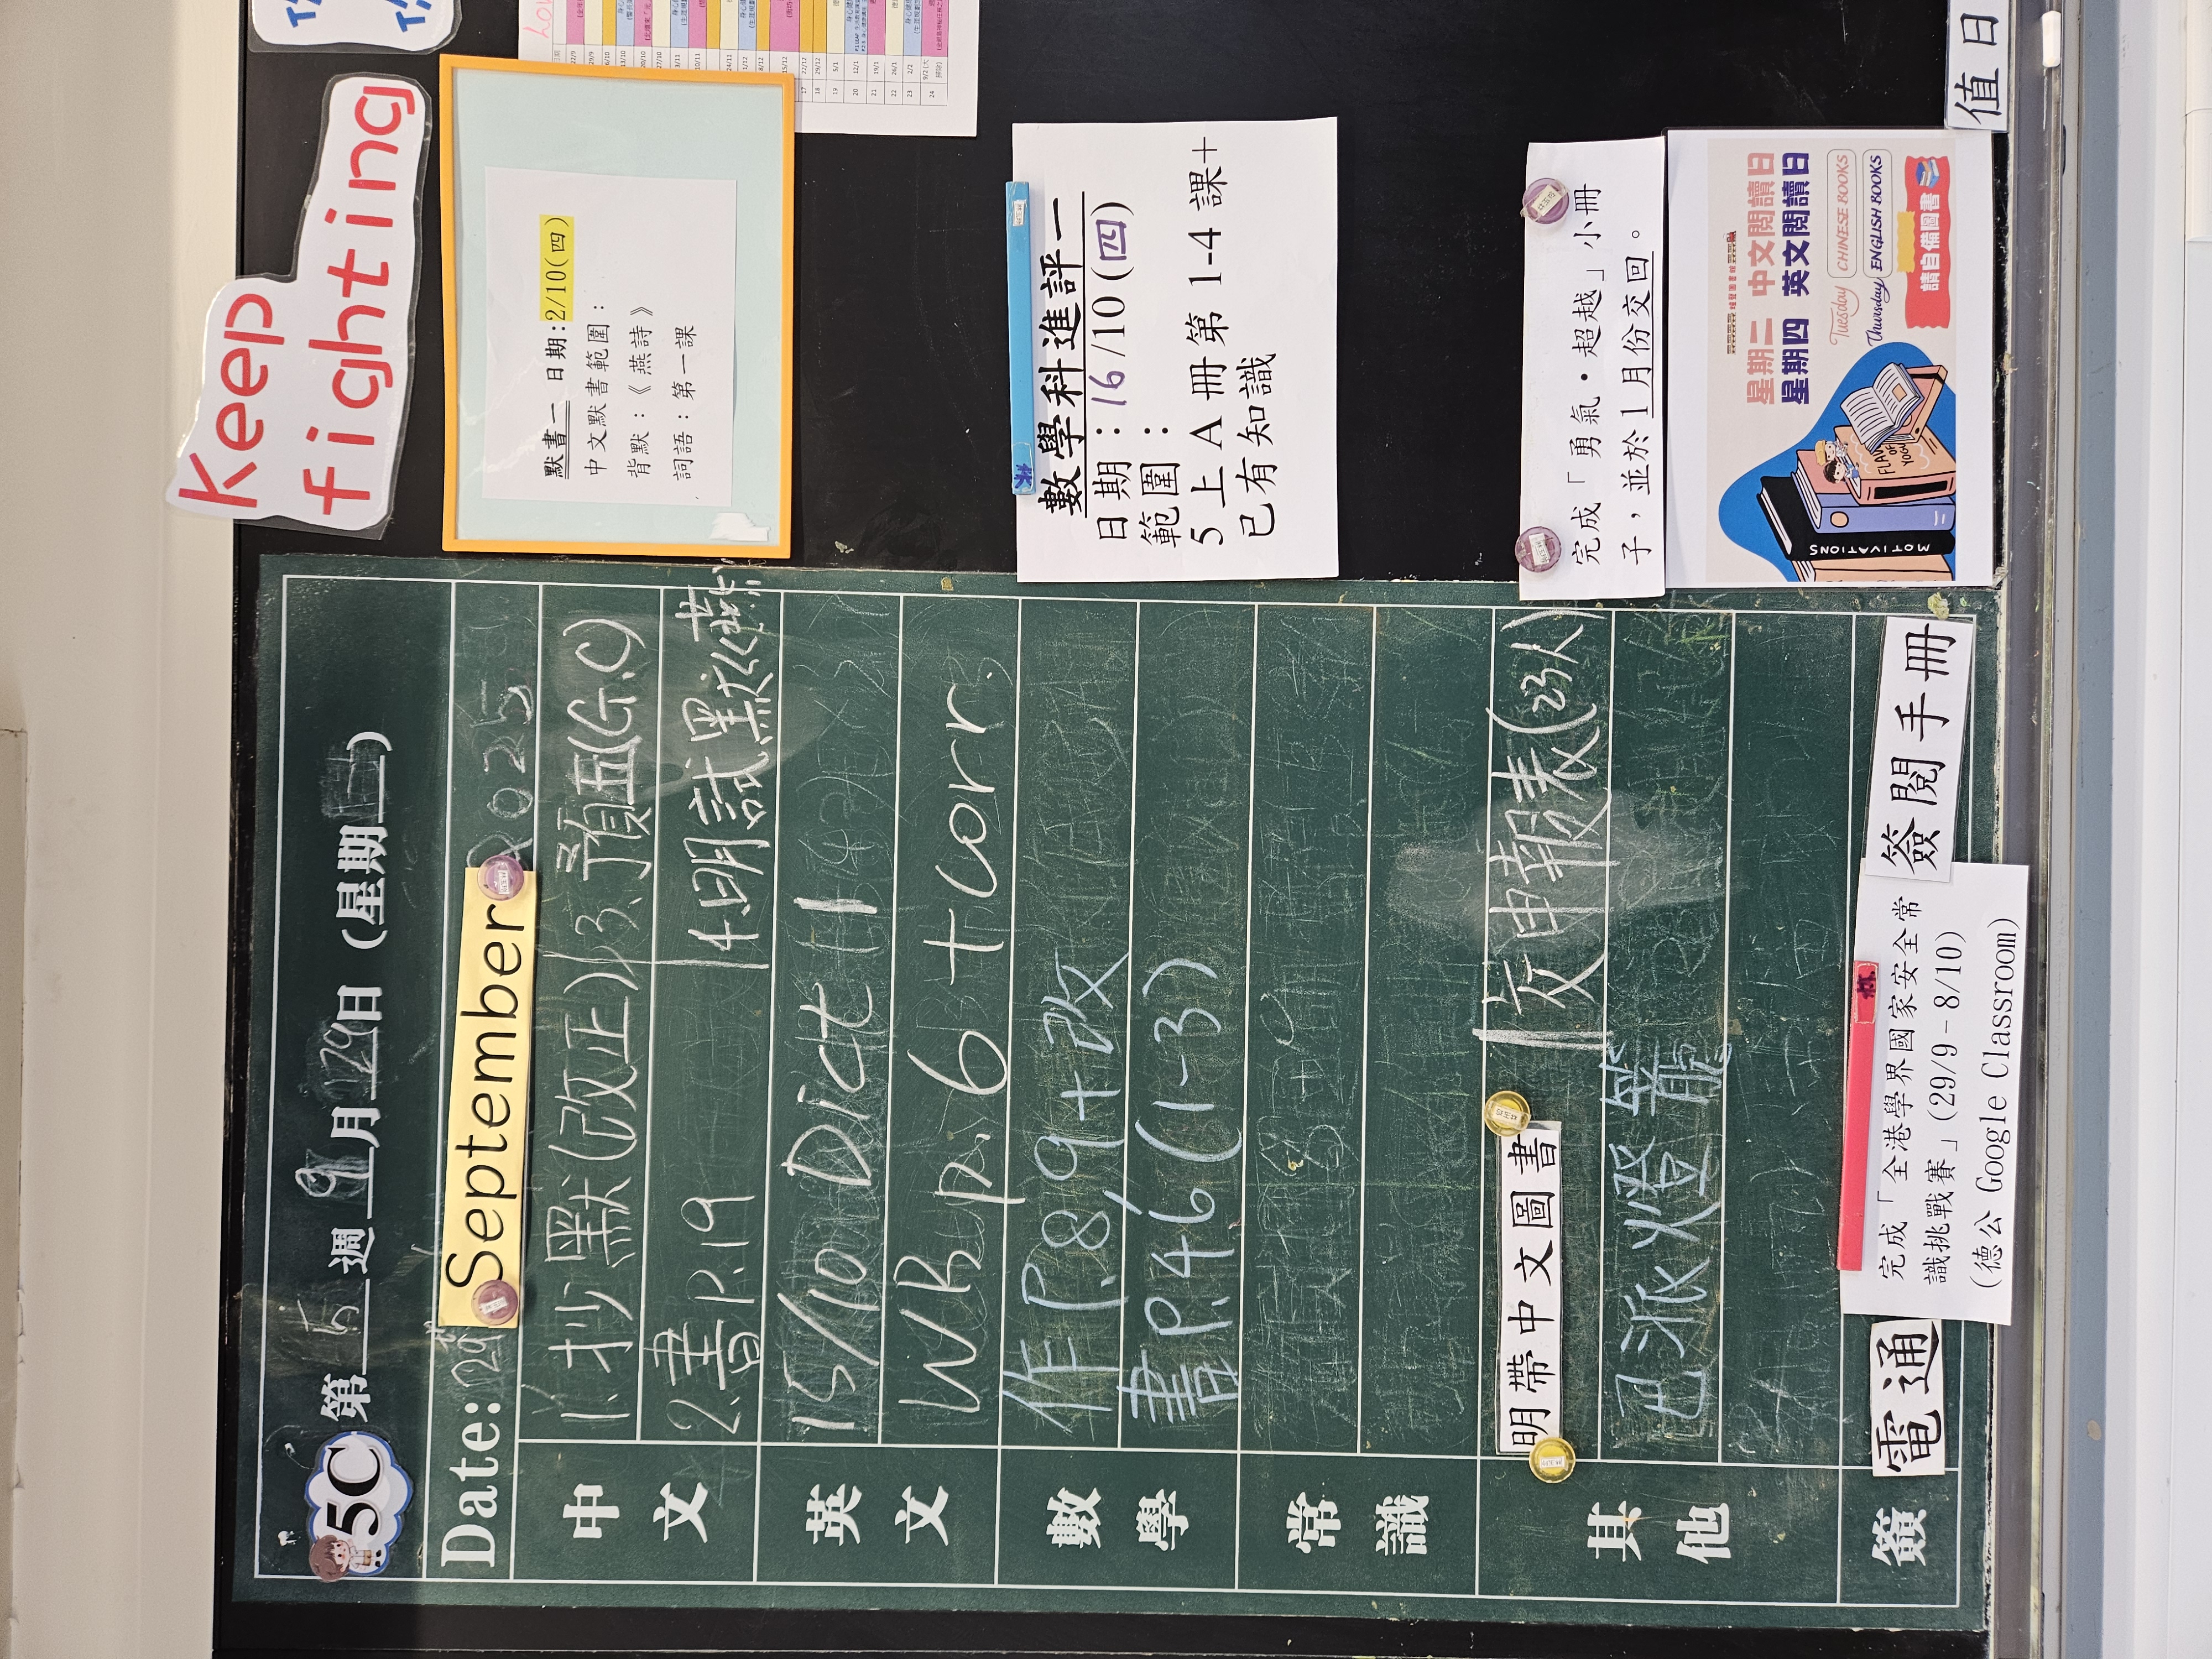 5C 第 5 週 9 月 29 日 (星期一)
Date: 29
September
2025
中文
1. 抄默(改正)
3. 預五(G.C)
2. 書P.19
4. 明試默《燕
英文
15/10 Dict 1
WB p.6 + corr.
數學
作P.8,9+改
書P.46(1-3)
常識
其他
明帶中文圖書
收申報表(23人)
已派燈籠
簽
電通
完成「全港學界國家安全常
識挑戰賽」(29/9-8/10)
(德公 Google Classroom)
簽閱手冊
Keep
fighting
默書一 日期:2/10(四)
中文默書範圍:
背默:《燕詩》
詞語:第一課
數學科進評一
日期:16/10(四)
範圍:
5上A冊第1-4課+
已有知識
完成「勇氣・超越」小冊
子,並於1月份交回。
星期二 中文閱讀日
星期四 英文閱讀日
Tuesday CHINESE BOOKS
Thursday ENGLISH BOOKS
請自備圖書
MOTIVATIONS
值日